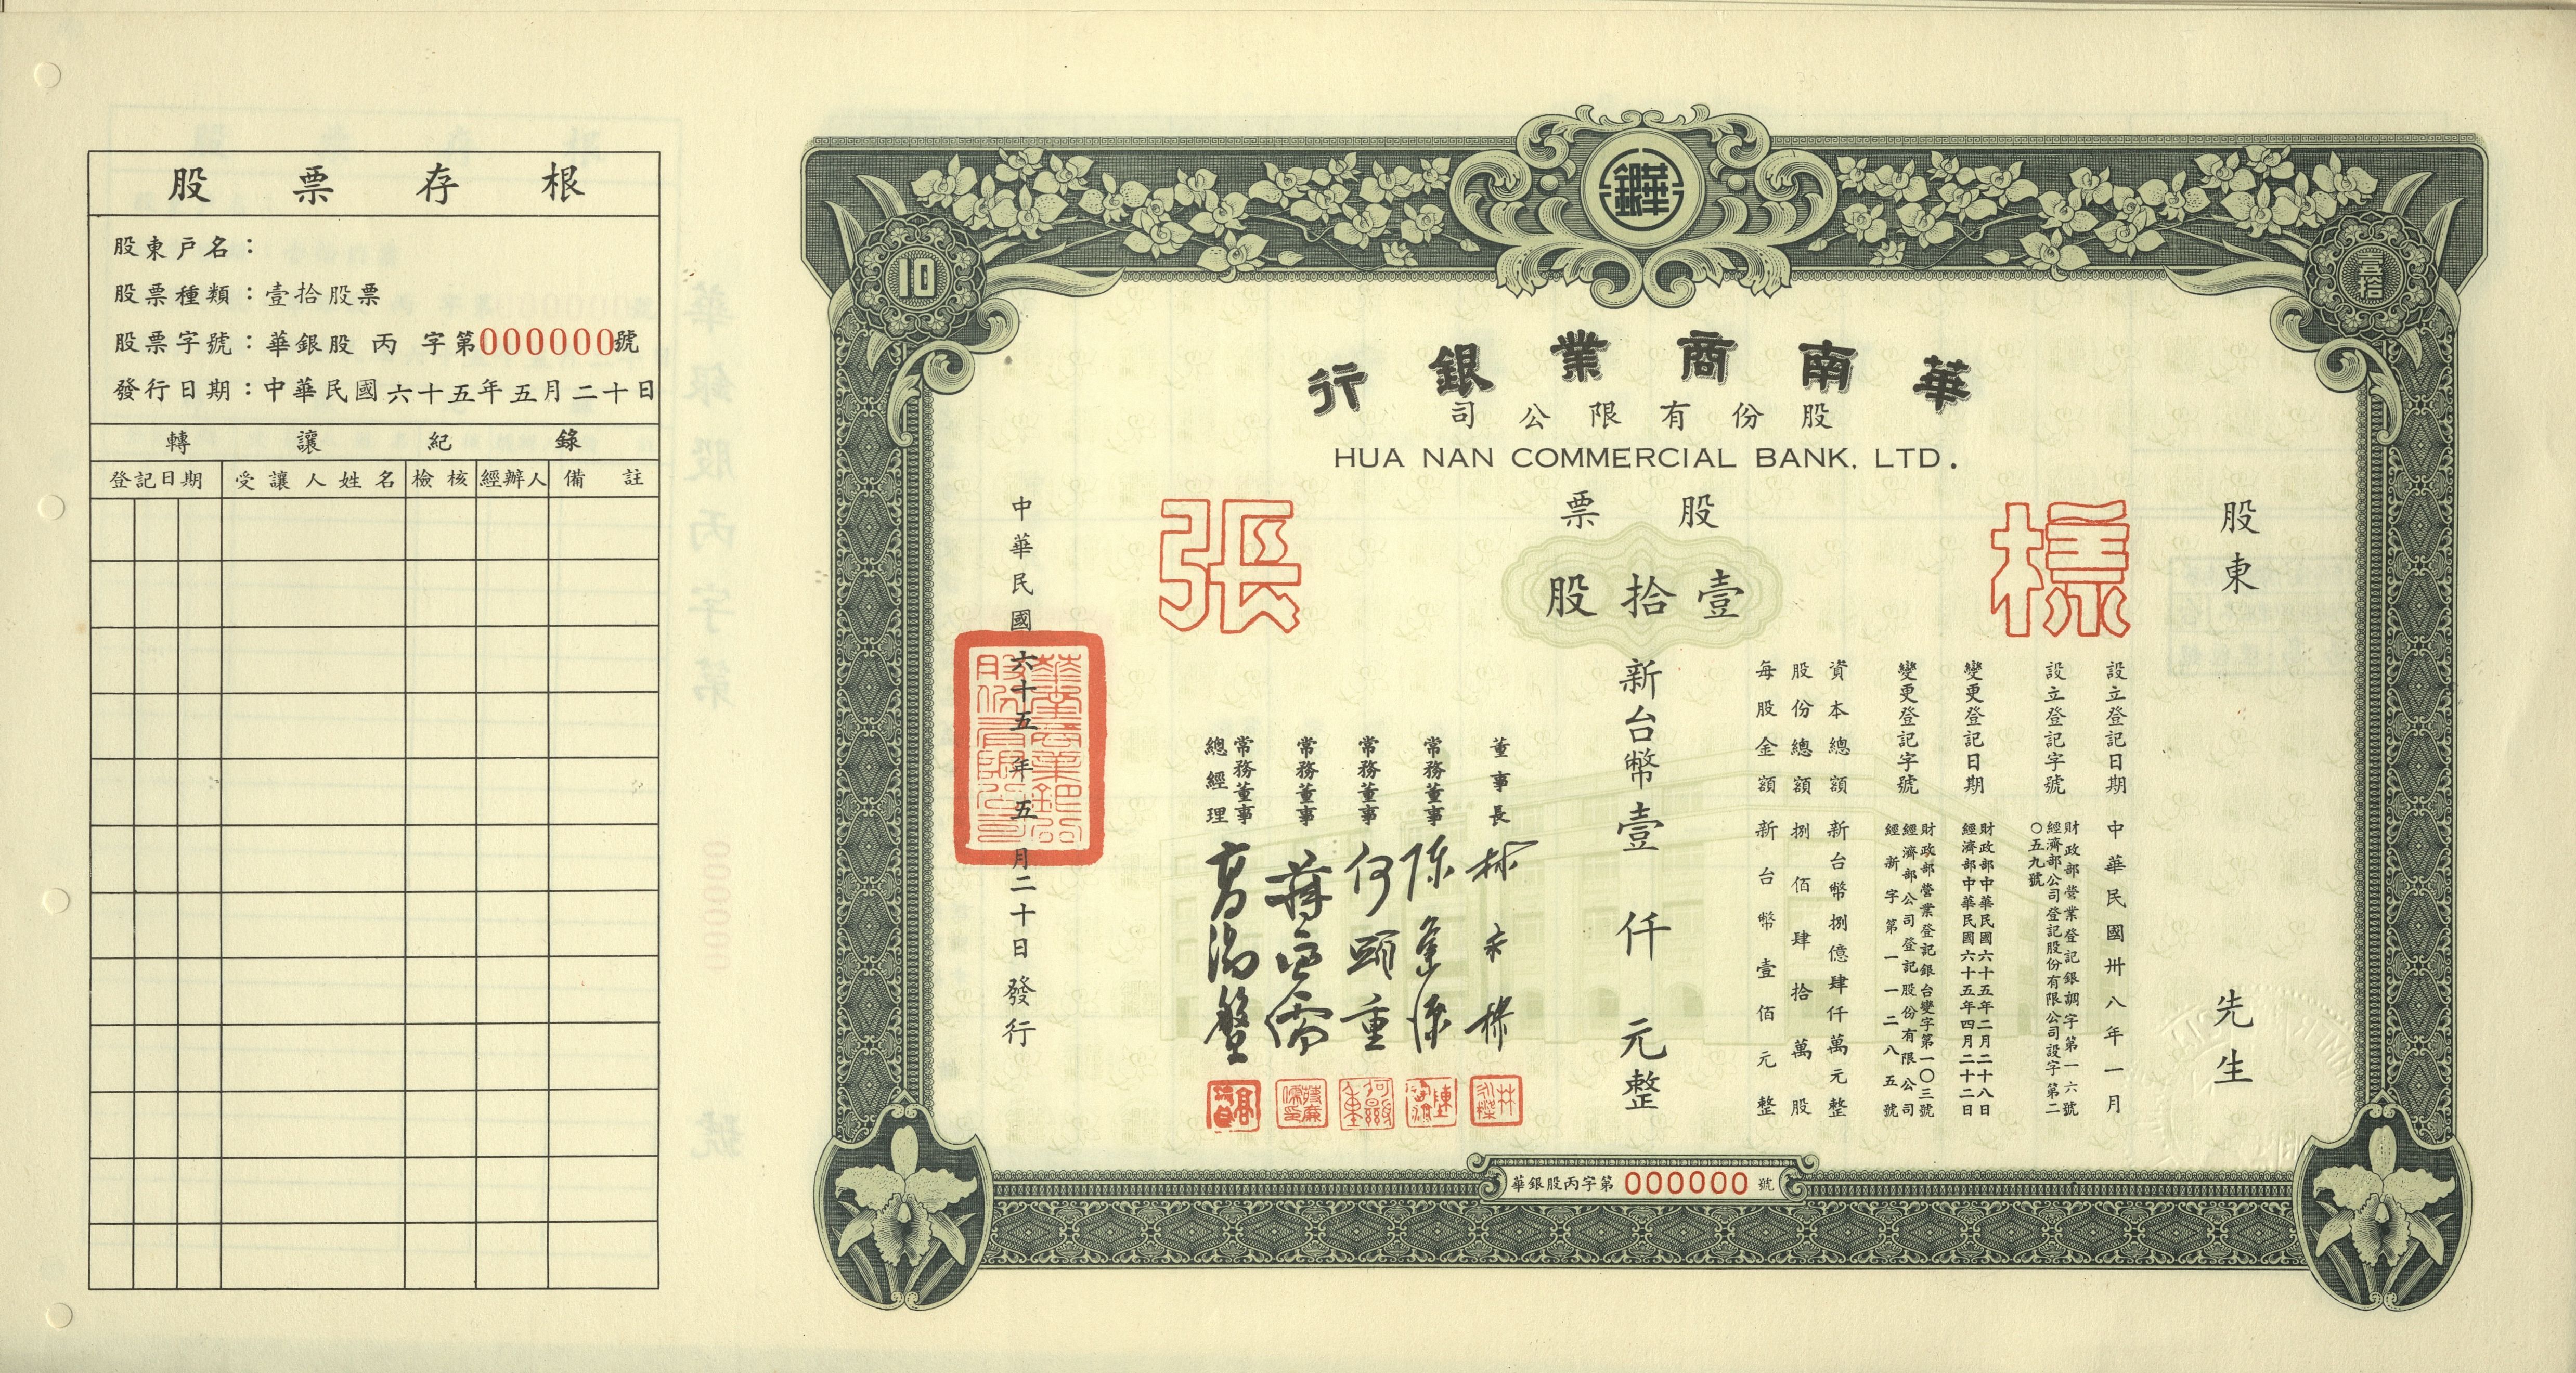 股票存根
股東戶名：
股票種類：壹拾股票
股票字號：華銀股 丙 字第000000號
發行日期：中華民國六十五年五月二十日
轉讓紀錄
登記日期 受讓人姓名 檢核 經辦人 備註
10
華銀
壹拾
華南商業銀行
股份有限公司
HUA NAN COMMERCIAL BANK, LTD.
股票
壹拾股
標
張
股東
先生
設立登記日期 中華民國卅八年一月
設立登記字號 財政部營業登記銀調字第一六號
經濟部公司登記股份有限公司設字第二
〇五九號
變更登記日期 財政部中華民國六十五年二月二十八日
經濟部中華民國六十五年四月二十二日
變更登記字號 財政部營業登記銀台變字第一〇三號
經濟部公司登記股份有限公司
經新字第一一二八五號
資本總額 新台幣捌億肆仟萬元整
股份總額 捌佰肆拾萬股
每股金額 新台幣壹佰元整
新台幣壹仟元整
董事長 林永樑
常務董事 陳逢源
常務董事 何顯重
常務董事
常務董事
總經理
中華民國六十五年五月二十日發行
華銀股丙字第 000000 號